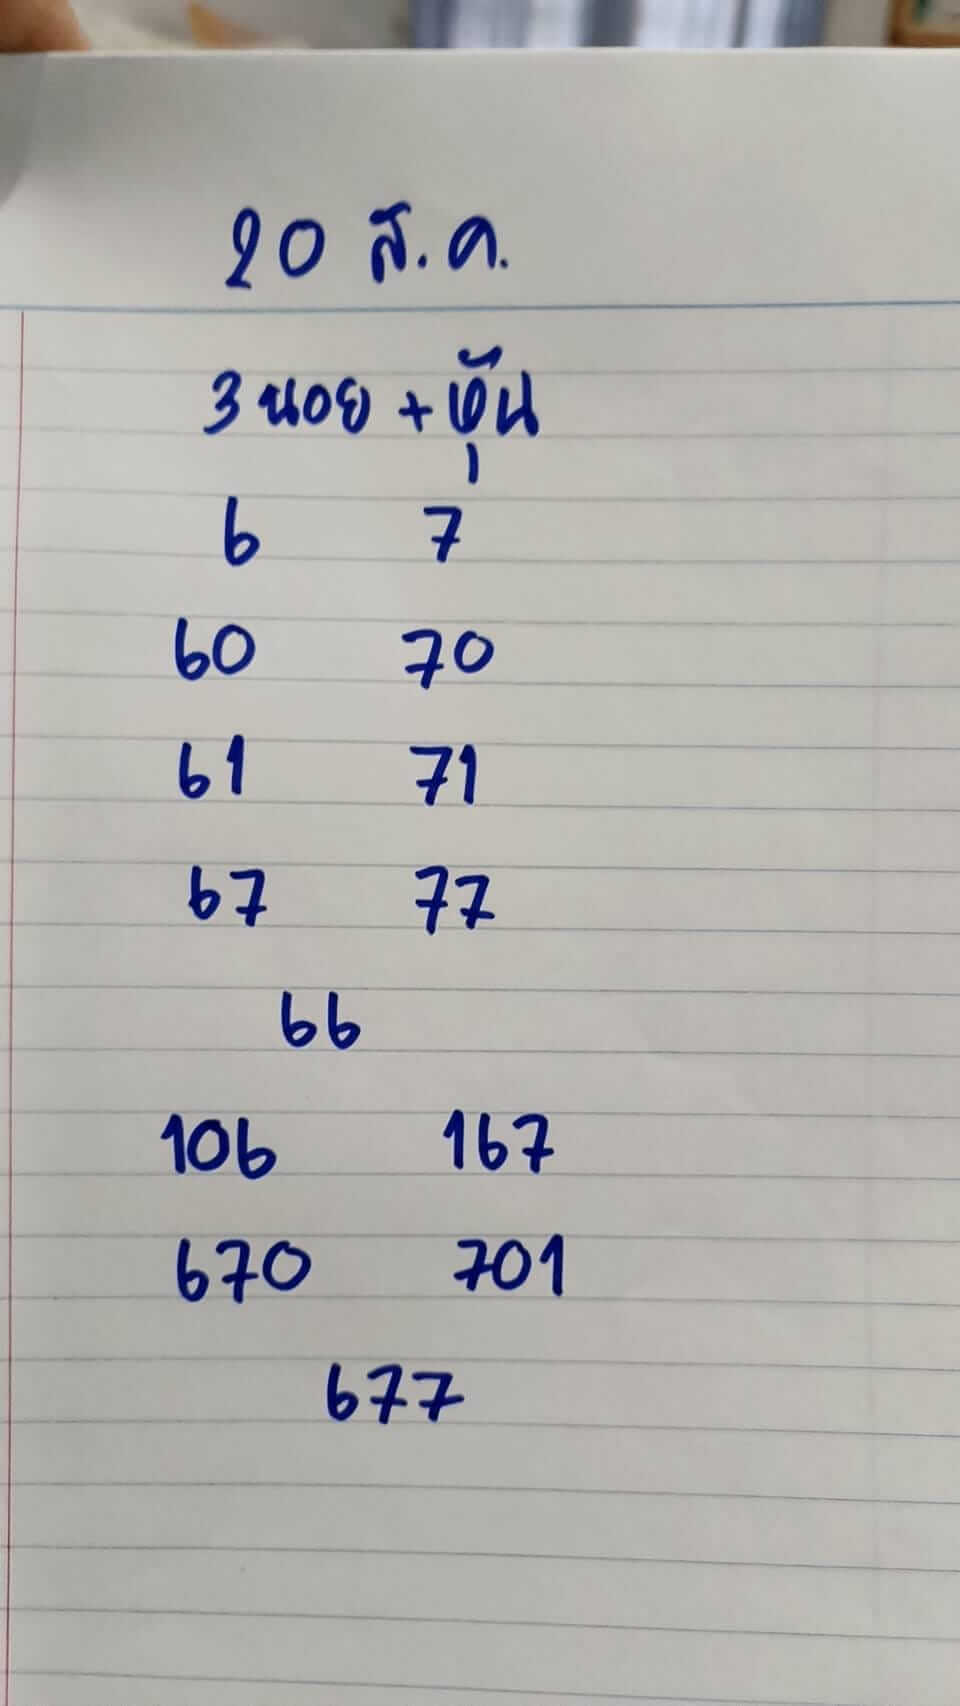 20 ส.ค.
3 นอย + หุ้น
6 7
60 70
61 71
67 77
66
106 167
670 701
677